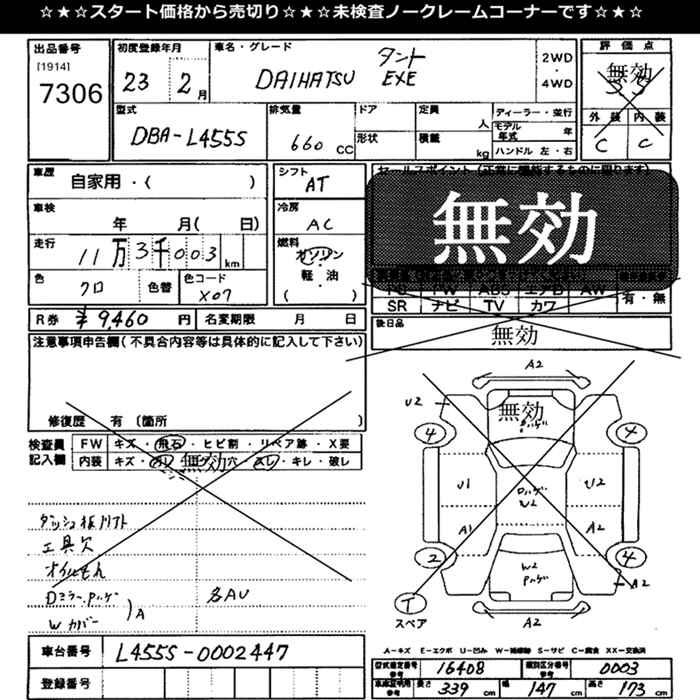 ☆★☆★スタート価格から売切り☆★☆★未検査ノークレームコーナーです☆★☆
出品番号
[1914]
7306
初度登録年月
23 2月
車名・グレード
DAIHATSU タント EXE
2WD
・
4WD
評価点
無効
外装 内装
C C
型式
DBA-L455S
排気量
660 CC
ドア
形状
定員
人
積載
kg
ディーラー・並行
モデル年式 年
ハンドル 左・右
車歴
自家用・( )
車検
年 月( 日)
走行
11万3千003km
色
クロ
色替
色コード
X07
シフト
AT
冷房
AC
燃料
ガソリン
・
軽・油
( )
セールスポイント(正常に機能するものに限ります)
無効
SR ナビ TV カワ
有・無
R券 ¥9,460円 名変期限 月 日
後日品
無効
注意事項申告欄(不具合内容等は具体的に記入して下さい)
修復歴 有 (箇所 )
検査員記入欄
FW キズ・飛石・ヒビ割・リペア跡・X要
内装 キズ・無効穴・スレ・キレ・破レ
ダッシュ板リフト
工具欠
オイルもれ
Dミラー.Pハゲ
Wカバー
)A
各AU
A2
U2
無効
4 4
U1
Pハゲ
W2
U2
A1 A2
2 4
W2
Pハゲ
A2
T
スペア
A2
A-キズ E-エクボ U-凹み W-補修跡 S-サビ C-腐食 XX-交換済
車台番号
L455S-0002447
登録番号
型式指定番号
参考
16408
類別区分番号
参考
0003
車庫証明用
参考
長さ 339 cm
幅 147 cm
高さ 173 cm